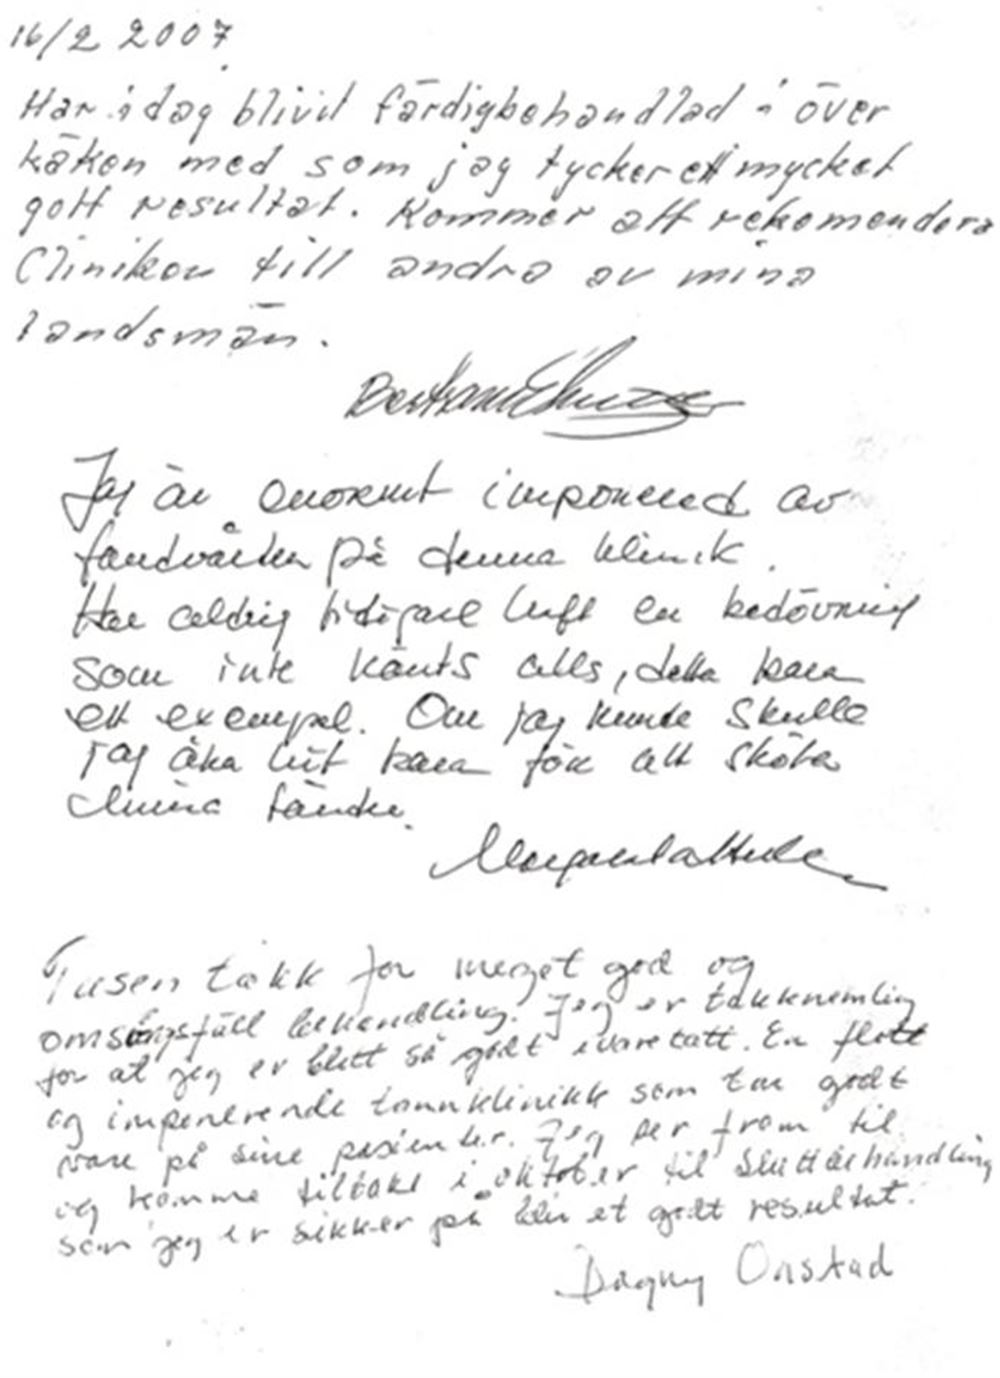 16/2 2007
Har idag blivit färdigbehandlad i över
käken med som jag tycker ett mycket
gott resultat. Kommer att rekomendera
Cliniken till andra av mina
landsmän.
Bertram
Jag är enormt imponerad av
tandvården på denna klinik.
Har aldrig tidigare haft en bedövning
som inte känts alls, detta bara
ett exempel. Om jag kunde skulle
jag åka hit bara för att sköta
mina tänder.
Margareta
Tusen takk for meget god og
omsorgsfull behandling. Jeg er takknemlig
for at jeg er blitt så godt ivaretatt. En flott
og imponerende tannklinikk som tar godt
vare på sine pasienter. Jeg ser fram til
og komme tilbake i oktober til sluttbehandling
som jeg er sikker på blir et godt resultat.
Dagny Onstad